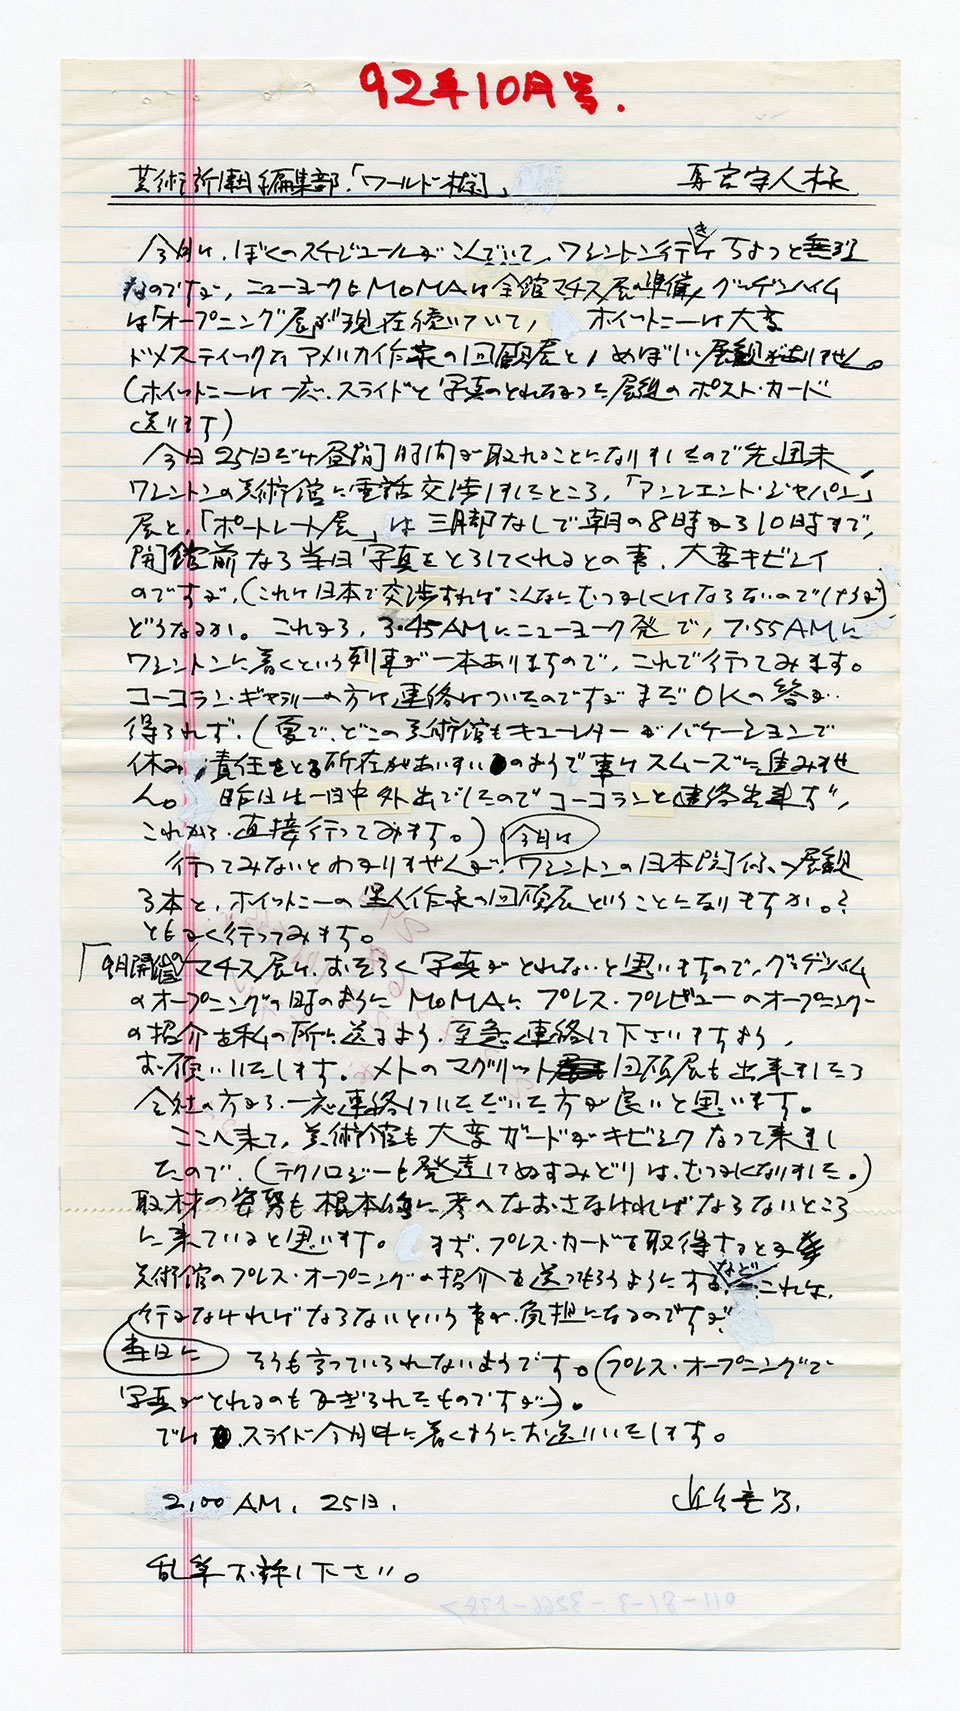 92年10月号.
芸術新潮編集部.「ワールド欄」、
今月は、ぼくのスケジュールがこんでいて、ワシントン行きはちょっと無理
なのですが、ニューヨークもMoMAは全館マチス展の準備、グッゲンハイム
は「オープニング展」が現在続いていて、ホイットニーは大変
ドメスティックなアメリカ作家の回顧展と、めぼしい展観がありません。
(ホイットニーは一応、スライドと写真のとれなかった展観のポスト・カード
送ります)
今日25日だけ昼間時間が取れることになりましたので先週末、
ワシントンの美術館に電話交渉しましたところ、「アンシエント・ジャパン」
展と、「ポートレート展」は三脚なしで朝の8時から10時まで、
開館前なら当日写真をとらしてくれるとの事、大変キビシイ
のですが、(これは日本で交渉すればこんなにむつかしくはならないのでしょうが)
どうなるか。これから、3.45AMにニューヨーク発で、7.55AMに
ワシントンに着くという列車が一本ありますので、これで行ってみます。
コーコラン・ギャラリーの方は連絡はついたのですがまだOKの答が
得られず、(夏で、どこの美術館もキューレターがバケーションで
休み、責任をとる所在があいまいのようで事はスムーズに進みませ
ん。昨日は一日中外出でしたのでコーコランと連絡出来ず、
これから、直接行ってみます。) 今月は
行ってみないとわかりませんが、ワシントンの日本関係の展観
3本と、ホイットニーの黒人作家の回顧展ということになりますか。?
ともかく行ってみます。
「9月開催の」マチス展は、おそらく写真がとれないと思いますので、グッゲンハイム
のオープニングの時のようにMoMAにプレス・プレビューのオープニング
の招介を私の所に送るよう、至急連絡して下さいますよう、
お願いいたします。メトのマグリット回顧展も出来ましたら
会社の方から、一応連絡していただいた方が良いと思います。
ここへ来て、美術館も大変ガードがキビシクなって来まし
たので、(テクノロジーも発達してぬすみどりは、むつかしくなりました。)
取材の姿勢も根本的に考へなおさなければならないところ
に来ていると思います。まず、プレス・カードを取得するとか
美術館のプレス・オープニングの招介を送ってもらうようにするなど これは、
当日に行かなければならないという事が、負担になるのですが
そうも言っていられないようです。(プレス・オープニングで
写真がとれるのもかぎられたものですが)。
では、スライド今月中に着くようにお送りいたします。
2,00 AM, 25日,
乱筆お許し下さい。
011-81-3-3266-5387